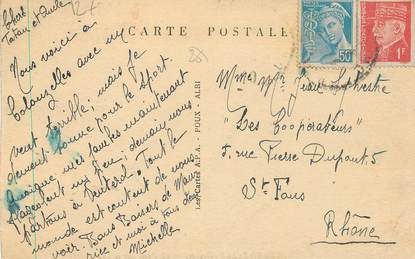 Chers
Tatan et
CARTE POSTALE
Nous voici à
Colomelles avec un
vent terrible; mais je
deviens bonne pour le sport.
Quoique mes jambes maintenant
flageolent un peu; demain nous
partons à Tout le
monde est content de nous
voir. Bons Baisers de Mau-
rice et moi à tous deux
Michelle
Les Cartes A.P.A. - POUX - ALBI
50
1F
Mme et Mr Jean Sylvestre
"Les Coopérateurs"
5, rue Pierre Dupont, 5
St Fons
Rhône